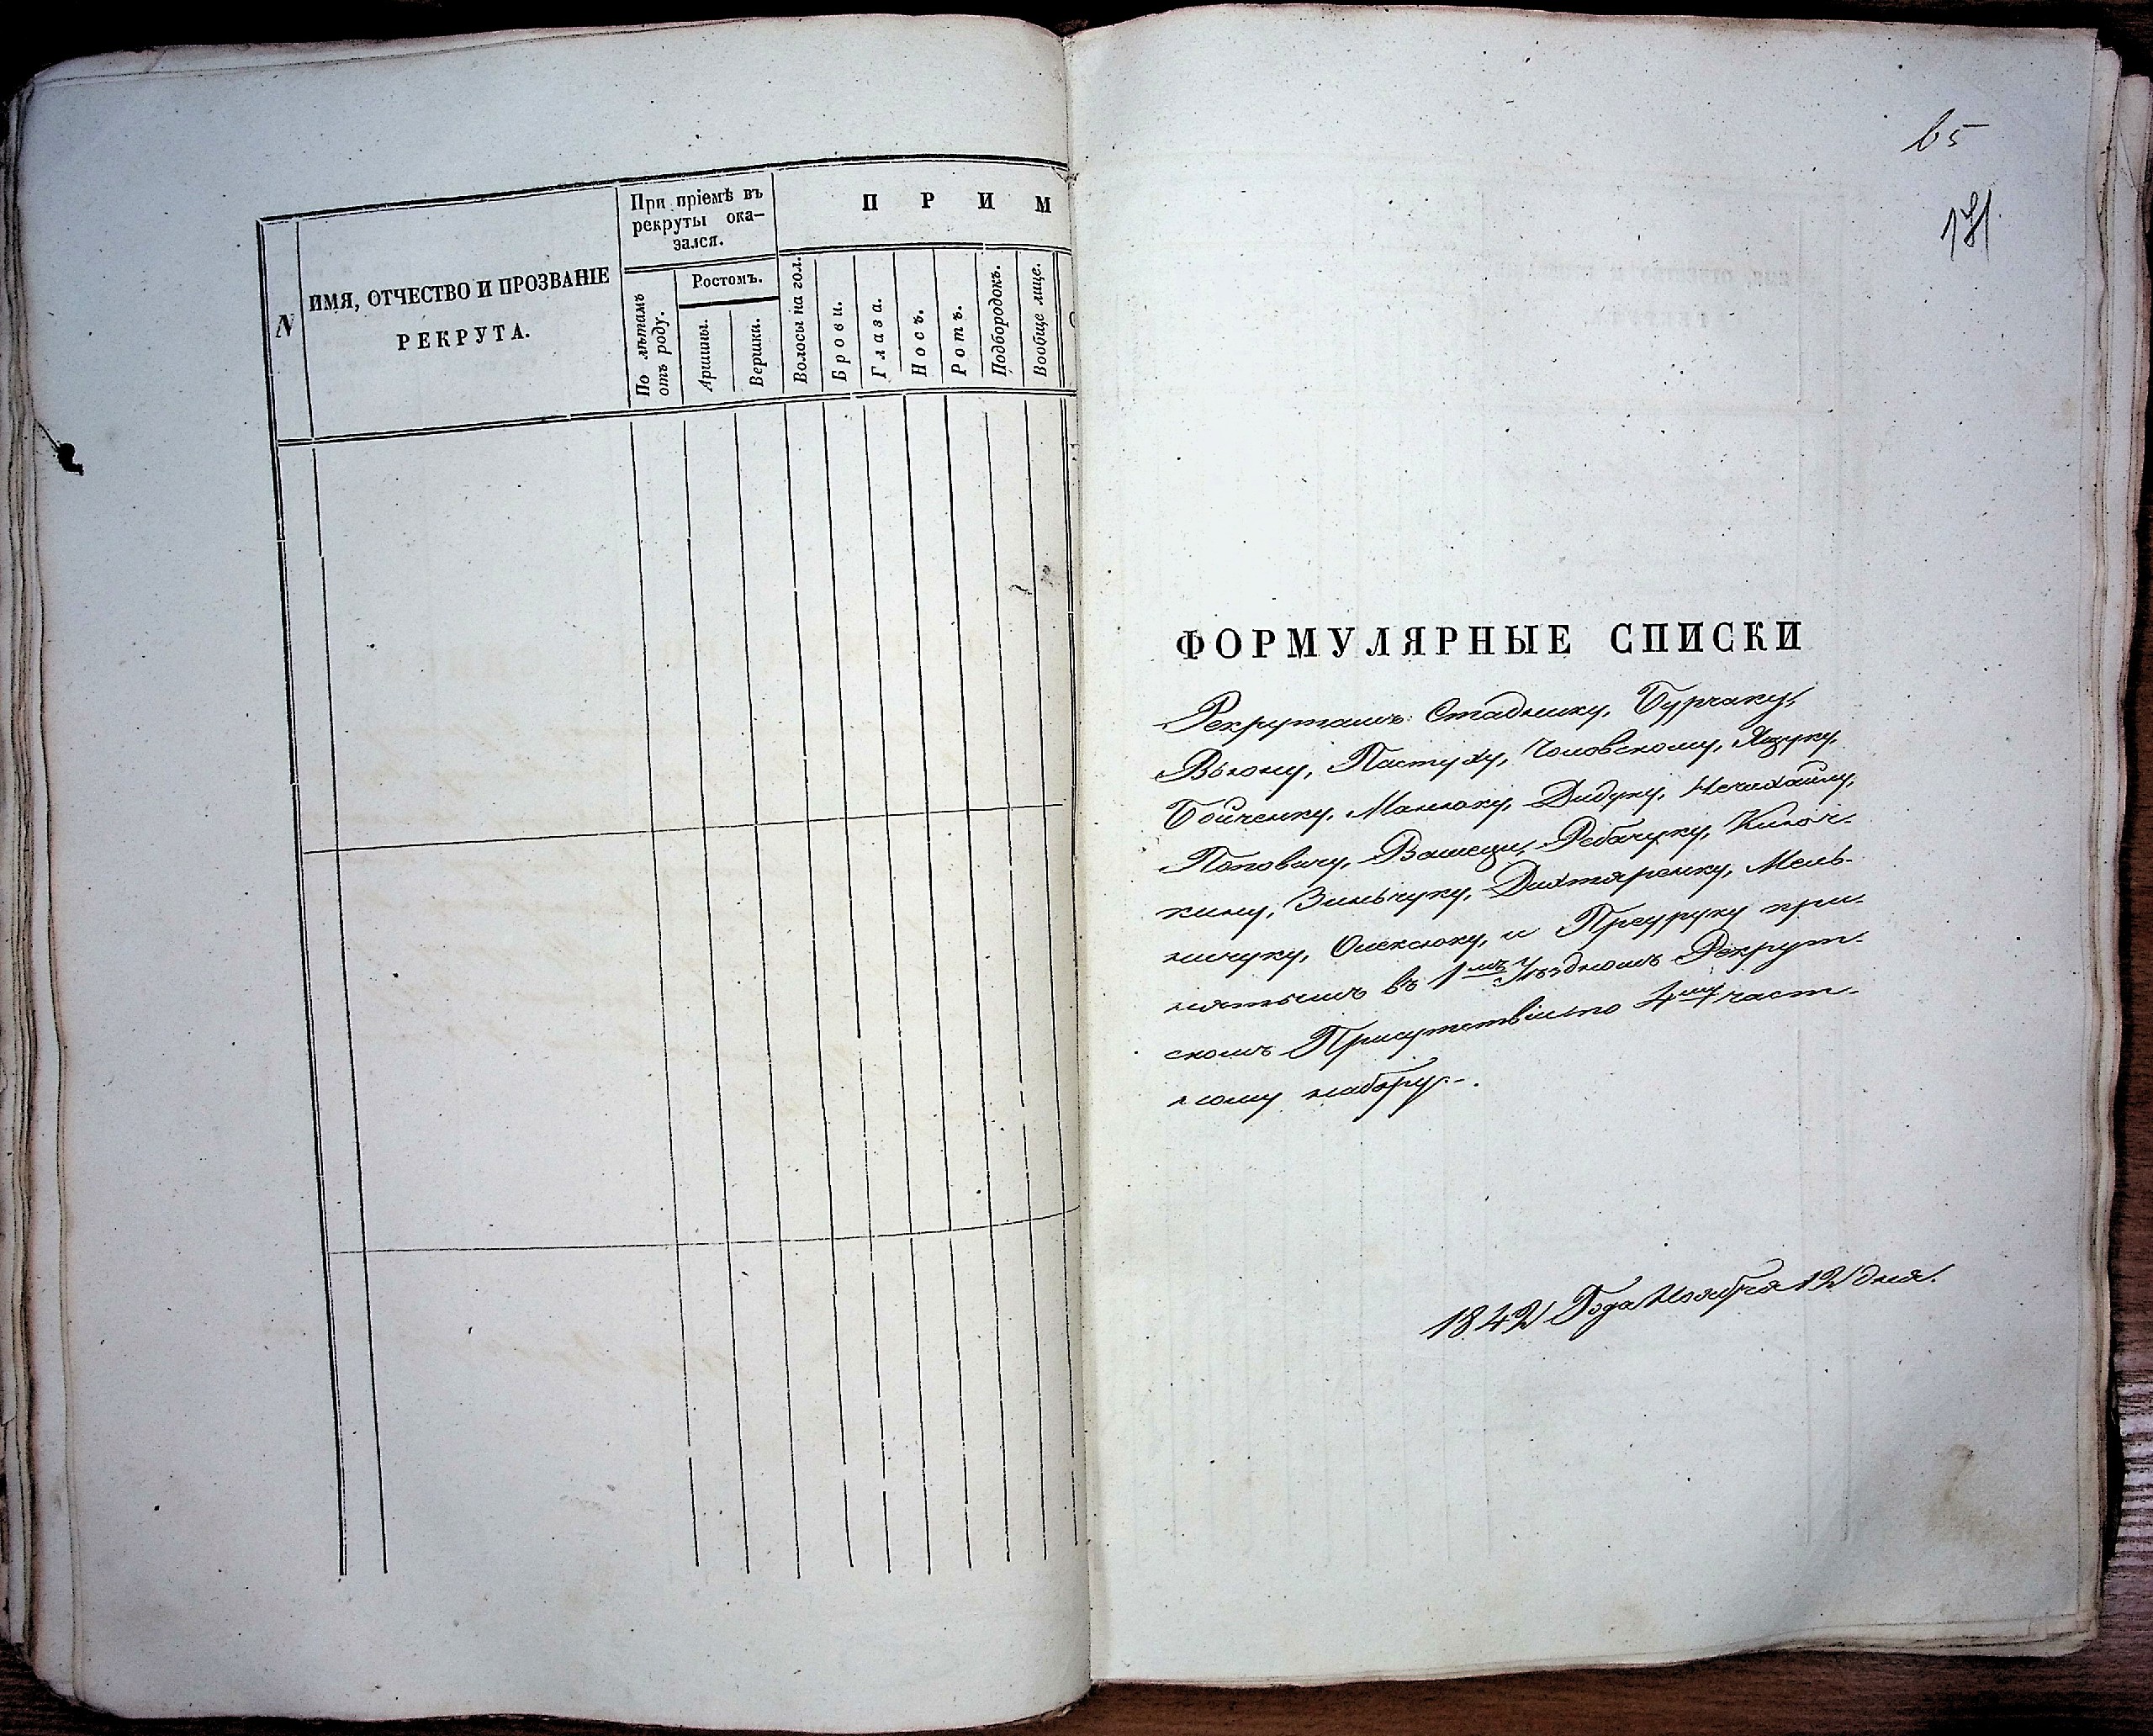 N
ИМЯ, ОТЧЕСТВО И ПРОЗВАНІЕ
РЕКРУТА.
При пріемѣ въ
рекруты ока-
зался.
По лѣтамъ
отъ роду.
Ростомъ.
Аршины.
Вершки.
П Р И М
Волосы на гол.
Брови.
Глаза.
Носъ.
Ротъ.
Подбородокъ.
Вообще лице.
65
171.
ФОРМУЛЯРНЫЕ СПИСКИ
Рекрутамъ: Стаднику, Бурчаку,
Вьюну, Пастуху, Чоловскому, Ящуку,
Бойченку, Манюку, Дидуку, Нечихайлу,
Поповичу, Ребачуку, Ключ-
кину, Зиньчуку, Дихтяренку, Мель-
ничуку, Олексюку, и при-
нятымъ въ 1мъ Уѣздномъ Рекрут-
скомъ Присутствіи по 4му част-
ному набору.-.
1842 Года Ноября 12 дня.